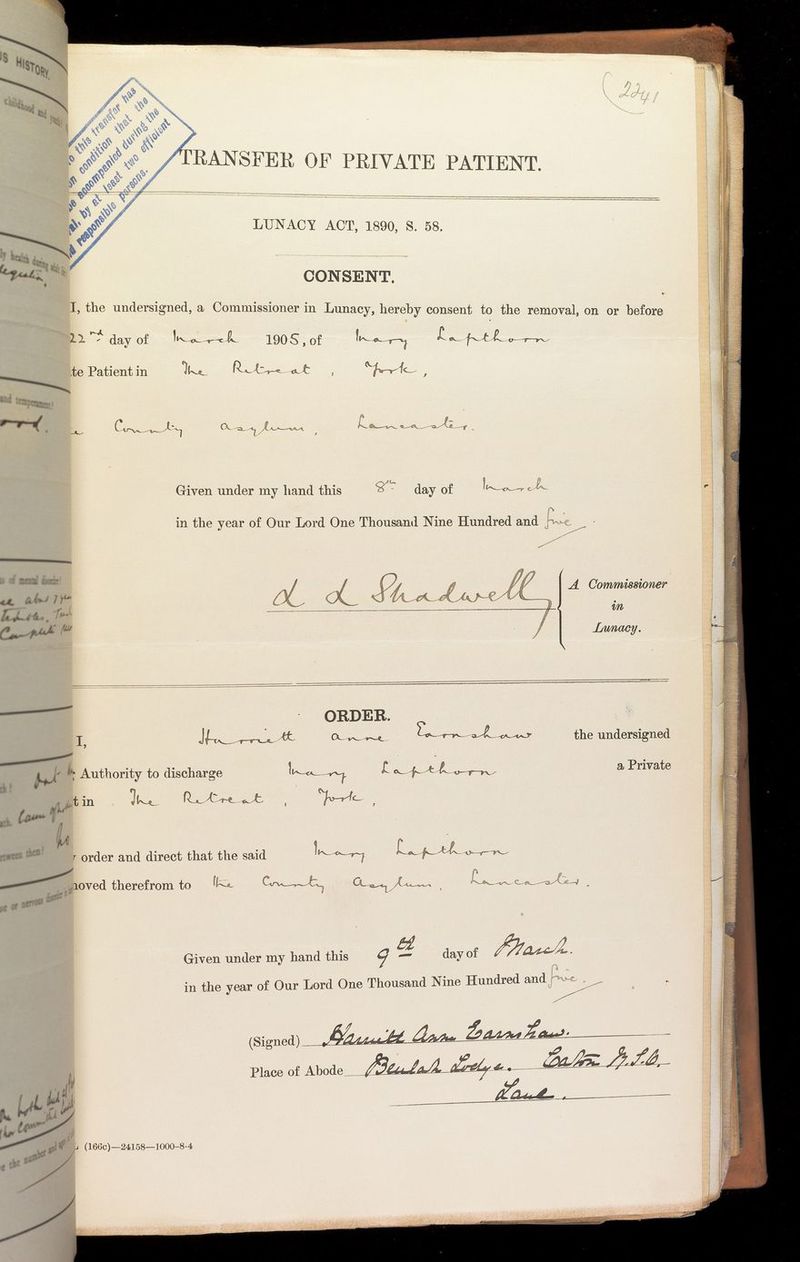 (2241
o this transfer has
on condition that the
be accompanied during the
al, by at least two efficient
d responsible persons.
TRANSFER OF PRIVATE PATIENT.
LUNACY ACT, 1890, S. 58.
CONSENT.
I, the undersigned, a Commissioner in Lunacy, hereby consent to the removal, on or before
22nd day of March 1905, of Mary Lapthorn
te Patient in The Retreat, York,
County Asylum, Lancaster.
Given under my hand this 8th day of March
in the year of Our Lord One Thousand Nine Hundred and five.
L L Shadwell
A Commissioner
in
Lunacy.
ORDER.
I, Harriett Anne Earnshaw the undersigned
Authority to discharge Mary Lapthorn a Private
t in The Retreat, York,
order and direct that the said Mary Lapthorn
moved therefrom to the County Asylum, Lancaster.
Given under my hand this 9th day of March.
in the year of Our Lord One Thousand Nine Hundred and five.
(Signed) Harriett Anne Earnshaw.
Place of Abode Beulah Lodge. Eaton
Lane.
(166c)—24158—1000-8-4
IS HISTORY.
childhood and youth
ly health during
and temperament?
of mental disorder?
tween them?
or nervous
e the number and